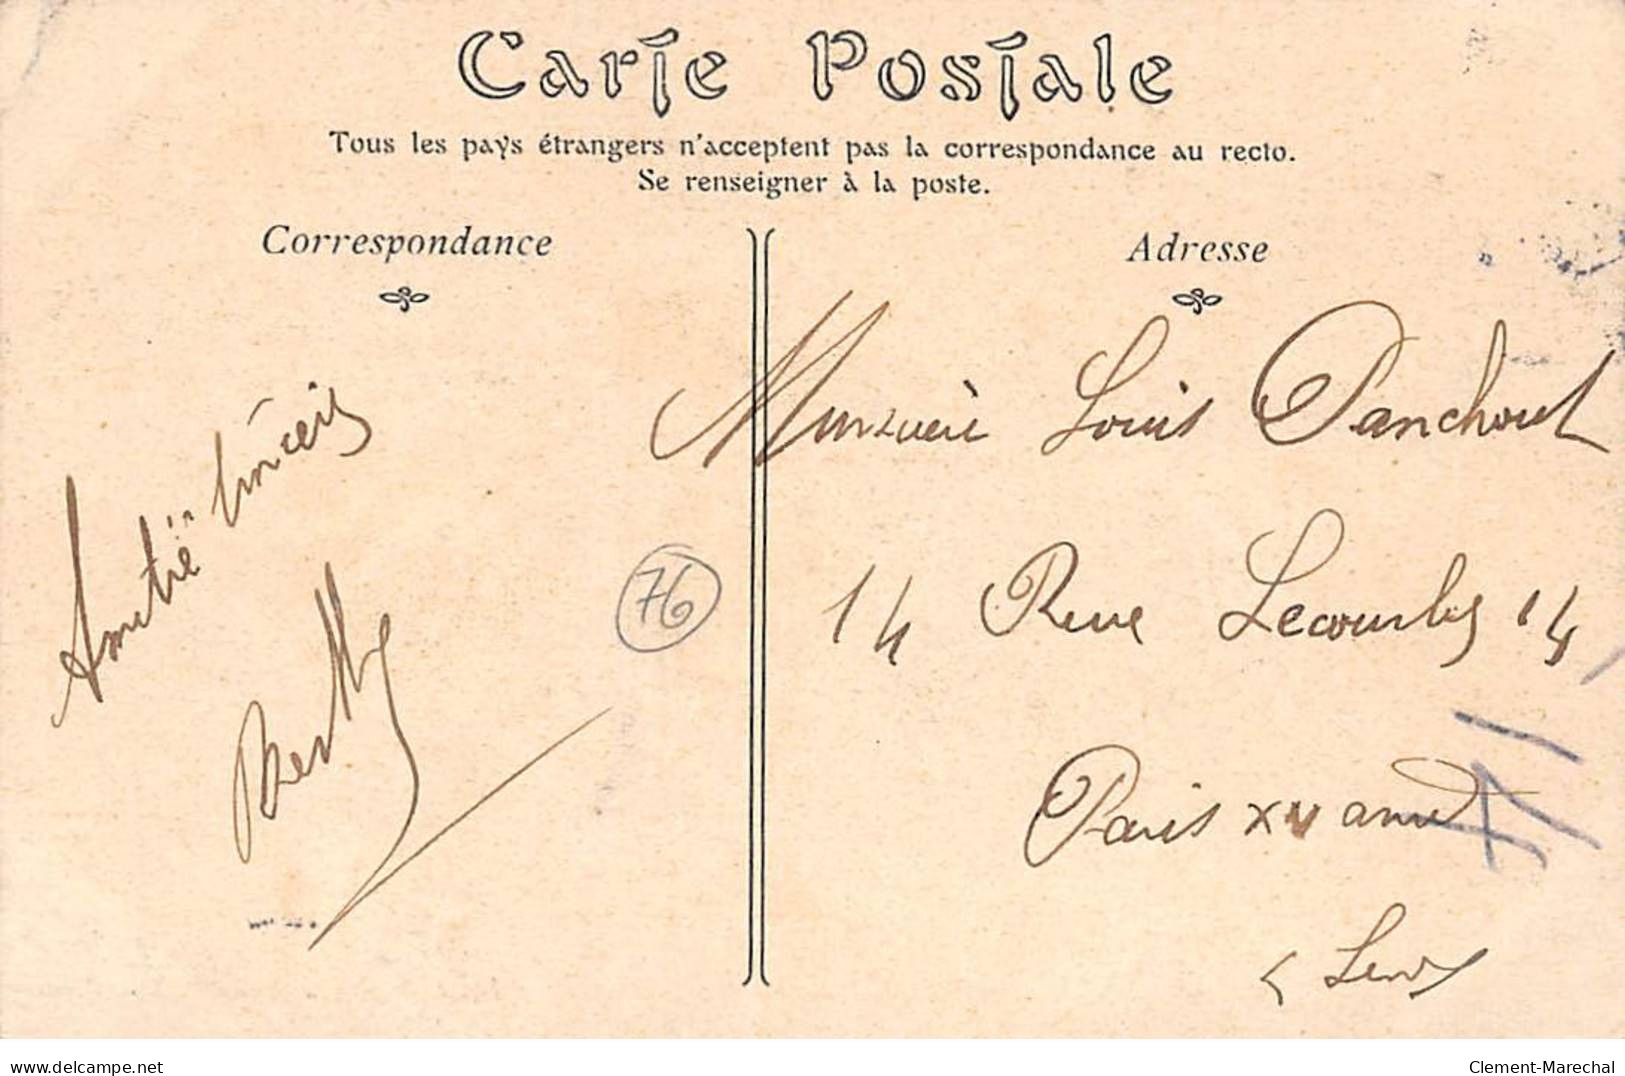 Carte Postale
Tous les pays étrangers n'acceptent pas la correspondance au recto.
Se renseigner à la poste.
Correspondance
Adresse
Amitié sincère
Berthe
76
Monsieur Louis Panchout
14 Rue Lecourbe 14
Paris XV arrd
delcampe.net
Clement-Marechal